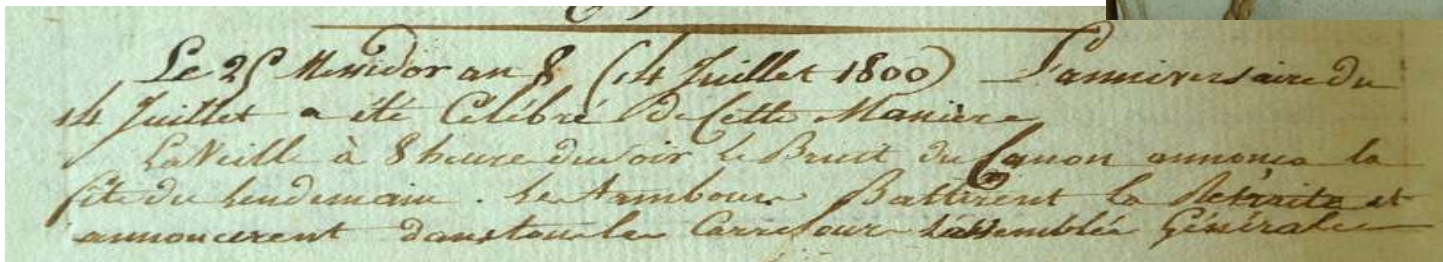 Le 25 Messidor an 8 (14 Juillet 1800) L'anniversaire du
14 Juillet a été Célébré de Cette Manière
La Veille à 8 heure du soir Le Bruit du Canon annonca la
fête du lendemain. Les tambours Battirent la Retraite et
annoncerent dans tous les Carrefours l'assemblée Générale